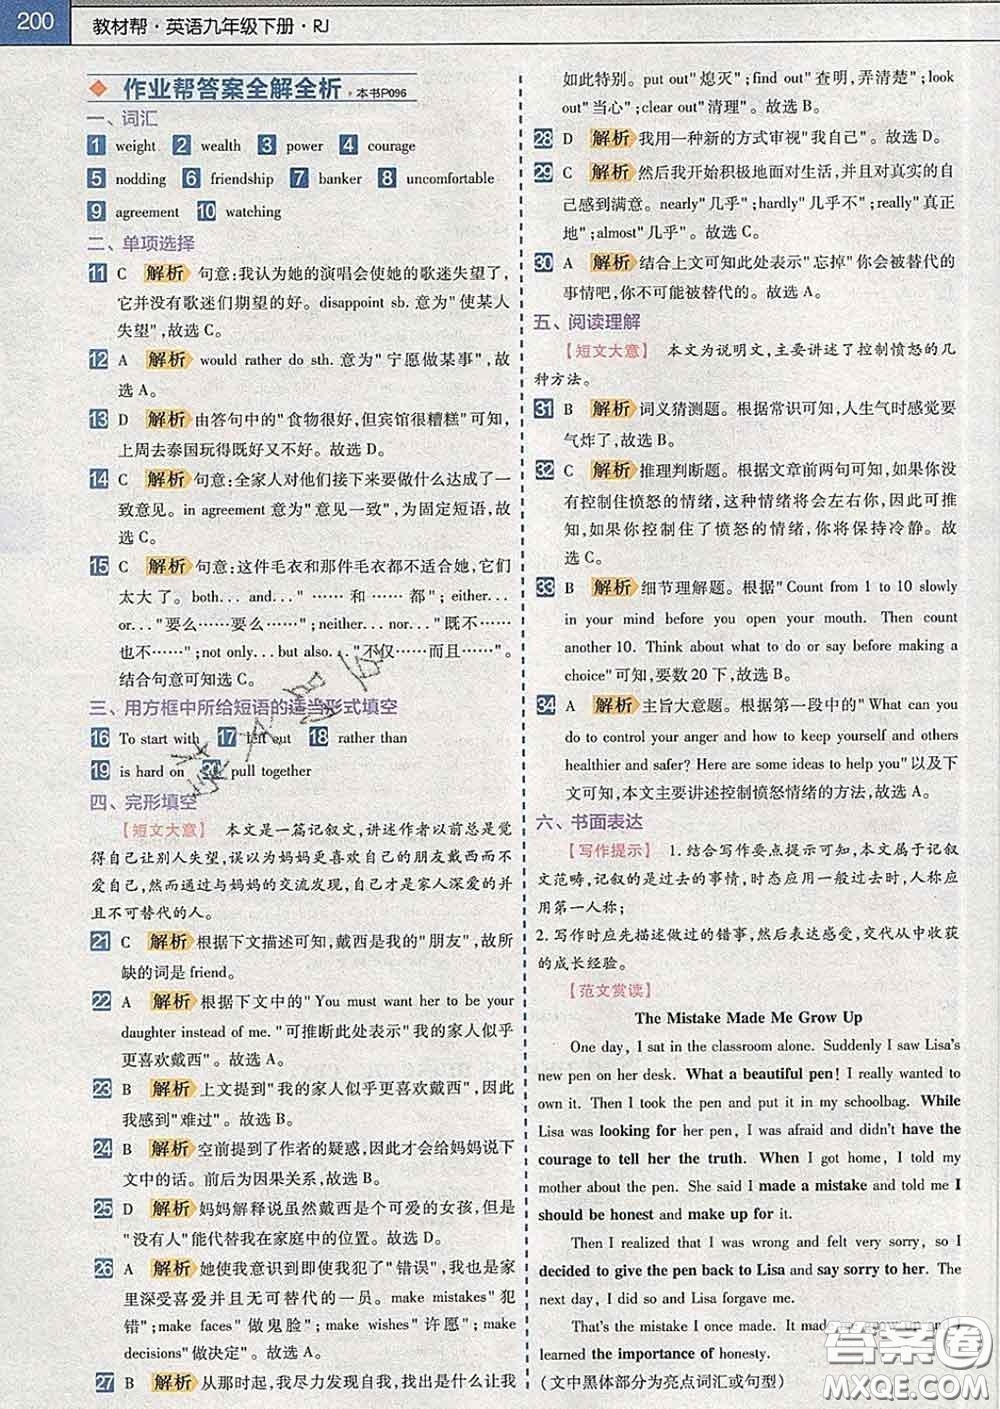 200 教材帮·英语九年级下册·RJ
作业帮答案全解全析 · 本书P096
一、词汇
1 weight 2 wealth 3 power 4 courage
5 nodding 6 friendship 7 banker 8 uncomfortable
9 agreement 10 watching
二、单项选择
11 C 解析 句意:我认为她的演唱会使她的歌迷失望了,
它并没有歌迷们期望的好。disappoint sb. 意为"使某人
失望",故选 C。
12 A 解析 would rather do sth. 意为"宁愿做某事",故
选 A。
13 D 解析 由答句中的"食物很好,但宾馆很糟糕"可知,
上周去泰国玩得既好又不好。故选 D。
14 C 解析 句意:全家人对他们接下来要做什么达成了一
致意见。in agreement 意为"意见一致",为固定短语,故
选C。
15 C 解析 句意:这件毛衣和那件毛衣都不适合她,它们
太大了。both. . . and. . ."……和……都"; either. . .
or. . ."要么……要么……"; neither. . . nor. . ."既不……
也不……"; not only. . . but also. . ."不仅……而且……"。
结合句意可知选 C。
三、用方框中所给短语的适当形式填空
16 To start with 17 left out 18 rather than
19 is hard on 20 pull together
四、完形填空
【短文大意】 本文是一篇记叙文,讲述作者以前总是觉
得自己让别人失望,误以为妈妈更喜欢自己的朋友戴西而不
喜爱自己,然而通过与妈妈的交流发现,自己才是家人深爱的并
且不可替代的人。
21 C 解析 根据下文描述可知,戴西是我的"朋友",故所
缺的词是 friend。
22 A 解析 根据下文中的"You must want her to be your
daughter instead of me. "可推断此处表示"我的家人似乎
更喜欢戴西"。故选 A。
23 B 解析 上文提到"我的家人似乎更喜欢戴西",因此
我感到"难过"。故选 B。
24 B 解析 空前提到了作者的疑惑,因此才会给妈妈说下
文中的话。前后为因果关系,故选 B。
25 D 解析 妈妈解释说虽然戴西是个可爱的女孩,但是
"没有人"能代替我在家庭中的位置。故选 D。
26 A 解析 她使我意识到即使我犯了"错误",我也是家
里深受喜爱并且无可替代的一员。make mistakes"犯
错";make faces"做鬼脸";make wishes"许愿";make
decisions"做决定"。故选 A。
27 B 解析 从那时起,我尽力发现自我,找出是什么让我
如此特别。put out"熄灭";find out"查明,弄清楚";look
out"当心";clear out"清理"。故选 B。
28 D 解析 我用一种新的方式审视"我自己"。故选 D。
29 C 解析 然后我开始积极地面对生活,并且对真实的自
己感到满意。nearly"几乎";hardly"几乎不";really"真正
地";almost"几乎"。故选 C。
30 A 解析 结合上文可知此处表示"忘掉"你会被替代的
事情吧,你不可能被替代的。故选 A。
五、阅读理解
【短文大意】 本文为说明文,主要讲述了控制愤怒的几
种方法。
31 B 解析 词义猜测题。根据常识可知,人生气时感觉要
气炸了,故选 B。
32 C 解析 推理判断题。根据文章前两句可知,如果你没
有控制住愤怒的情绪,这种情绪将会左右你,因此可推
知,如果你控制住了愤怒的情绪,你将保持冷静。故
选 C。
33 B 解析 细节理解题。根据"Count from 1 to 10 slowly
in your mind before you open your mouth. Then count
another 10. Think about what to do or say before making a
choice"可知,要数 20 下,故选 B。
34 A 解析 主旨大意题。根据第一段中的"What can you
do to control your anger and how to keep yourself and others
healthier and safer? Here are some ideas to help you"以及下
文可知,本文主要讲述控制愤怒情绪的方法,故选 A。
六、书面表达
【写作提示】 1. 结合写作要点提示可知,本文属于记叙
文范畴,记叙的是过去的事情,时态应用一般过去时,人称应
用第一人称;
2. 写作时应先描述做过的错事,然后表达感受,交代从中收获
的成长经验。
【范文赏读】
The Mistake Made Me Grow Up
One day, I sat in the classroom alone. Suddenly I saw Lisa's
new pen on her desk. What a beautiful pen! I really wanted to
own it. Then I took the pen and put it in my schoolbag. While
Lisa was looking for her pen, I was afraid and didn't have the
courage to tell her the truth. When I got home, I told my
mother about the pen. She said I made a mistake and told me I
should be honest and make up for it.
Then I realized that I was wrong and felt very sorry, so I
decided to give the pen back to Lisa and say sorry to her. The
next day, I did so and Lisa forgave me.
That's the mistake I once made. It made me grow up and I
learned the importance of honesty.
(文中黑体部分为亮点词汇或句型)
答案圈
MXQE.COM